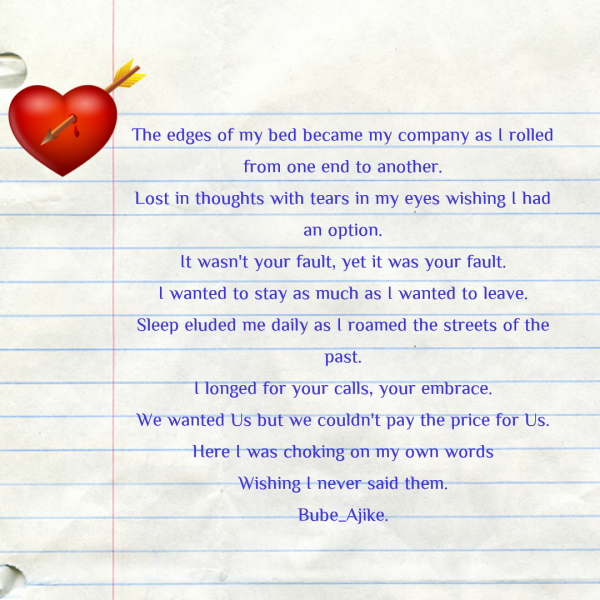 The edges of my bed became my company as I rolled
from one end to another.
Lost in thoughts with tears in my eyes wishing I had
an option.
It wasn't your fault, yet it was your fault.
I wanted to stay as much as I wanted to leave.
Sleep eluded me daily as I roamed the streets of the
past.
I longed for your calls, your embrace.
We wanted Us but we couldn't pay the price for Us.
Here I was choking on my own words
Wishing I never said them.
Bube_Ajike.